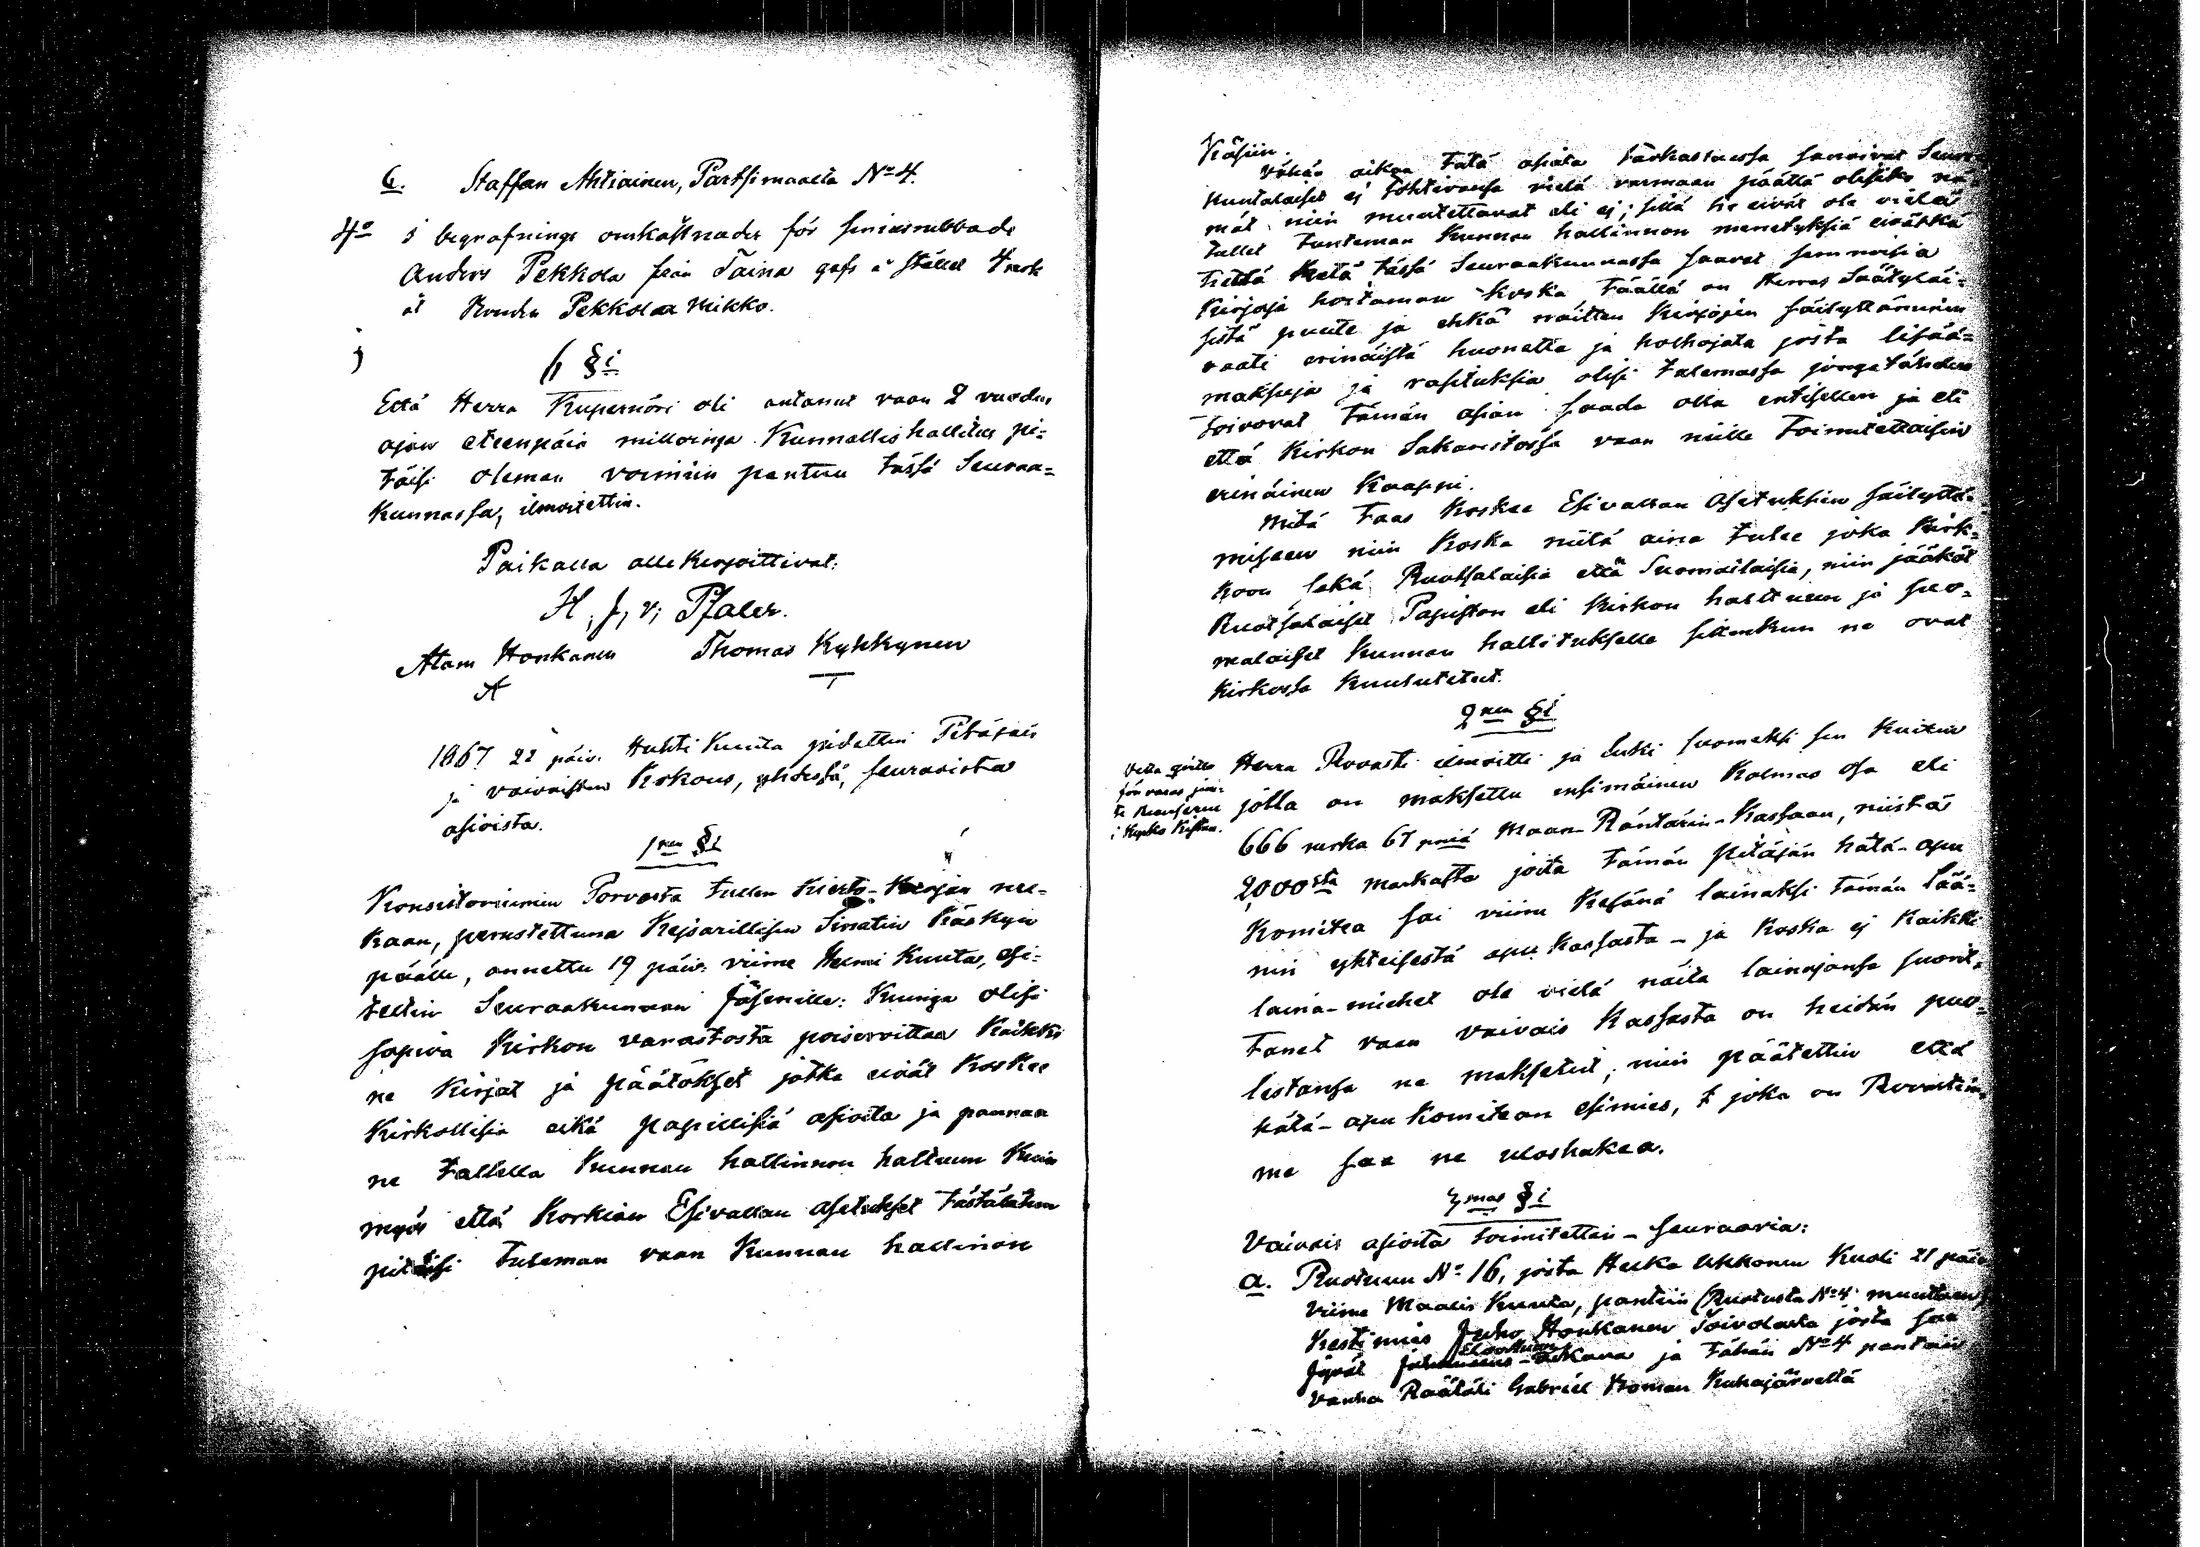 C. Staffan Ahtiainen, Partsimaalta No 4.
4o i begrafnings omkåstnader för
Anders Pekkola från Taina gafs i stället 4 mark
åt Bonden Pekkola Mikko.
6 §i
Että Herra Kupernöri oli antanut vaan 2 vuoden
ajan eteenpäin milloinga Kunnallishallitus pi=
täisi oleman voimiin pantuu tässä Seuraa=
Kunnassa, ilmoitettiin.
Paikalla allekirjoittivat:
H, J, v; Pfaler.
Atam Honkanen Thomas Kykkynen
A T
1867 22 päiv. Huhti Kuuta pidettiin Pitäjäis
ja vaivaisten Kokous, yhdessä, seuravista
asioista.
1nen §i
Konsistoriumin Porvosta tullen Kierto-Kirjan mu=
kaan, perustettuna Kejsarillisen Senatin Käskyn
päälle, annettu 19 päiv. viime Helmi Kuuta, esi=
teltiin Seuraakunnan Jäsenille: Kuinga olisi
sopiva Kirkon varastosta poiseroittaa Kaikki
ne Kirjat ja päätökset jotka eivät Koskee
Kirkollisia eikä papillisiä asioita ja pannaa
ne tallella Kunnan hallinnon haltuun Kuin
myös että Korkian Esivallan asetukset tästälähin
pitäisi tuleman vaan Kunnan hallinon
Käsiin.
Vähän aikaa tätä asiata tarkastaessa sanoivat Seura
kuntalaiset ej tohtivansa vielä varmaan päättä olisiko nä
mät niin muutettavat eli ej; sillä he eivät ole vielä
tullet tunteman Kunnan hallinnon menetyksiä eivätkä
tiedä Ketä tässä Seuraakunnassa saavat semmosia
Kirjoja hoitaman Koska täällä on Herras Säätyläi=
sistä puute ja ehkä näitten Kirjojen säilyttäminen
vaati erinäistä huonetta ja holhojata josta lisää=
maksuja ja rasituksia olisi tulemassa jonga tähden
toivovat tämän asian saada olla entisellen ja eli
että Kirkon Sakaristossa vaan niille toimitettaisiin
erinäinen Kaappi.
Mitä taas Koskee Esivallan Asetuksien säilyttä=
misseen niin Koska niitä aina tulee joka Kirk=
koon sekä Ruotsalaisia että Suomalaisia, niin jääköt
Ruotsalaiset Papiston eli Kirkon haltuun ja suo=
malaiset Kunnan hallituksella sittenkun ne ovat
Kirkossa Kuulutetut.
2nen §i
i Kyrko Kistan.
Herra Rovasti ilmoitti ja luki suomeksi sen Kuitin
jolla on maksettu ensimäinen Kolmas osa eli
666 marka 67 pniä Maan-Räntärin-Kassaan, niistä
2,000sta markasta joita tämän pitäjän hätä-apu
Komitea sai viime Kesänä lainaksi tämän Lää=
nin yhteisestä apu Kassasta - ja Koska ej Kaikki
laina-miehet ole vielä näitä lainojansa suorit=
tanet vaan vaivais Kassasta on heidän puo=
lestansa ne maksetut, niin päätettiin että
hätä-apu Komitean esimies, joka on Rovastim=
me saa ne uloshakea.
3mas §i
Vaivais asioita toimitettiin - seuraavia:
a. Ruotuun No 16, josta Heikka Ukkonen Kuoli 21 päiv
viime Maalis Kuuta, pantiin (Ruotusta No 4 muuttaen)
Kestimies Juho Honkanen Toivolasta josta saa
jyvät Elo Kuun - aikana ja tähän No 4 pantiin
vanha Räätäli Gabriel Koman Kuhajärveltä